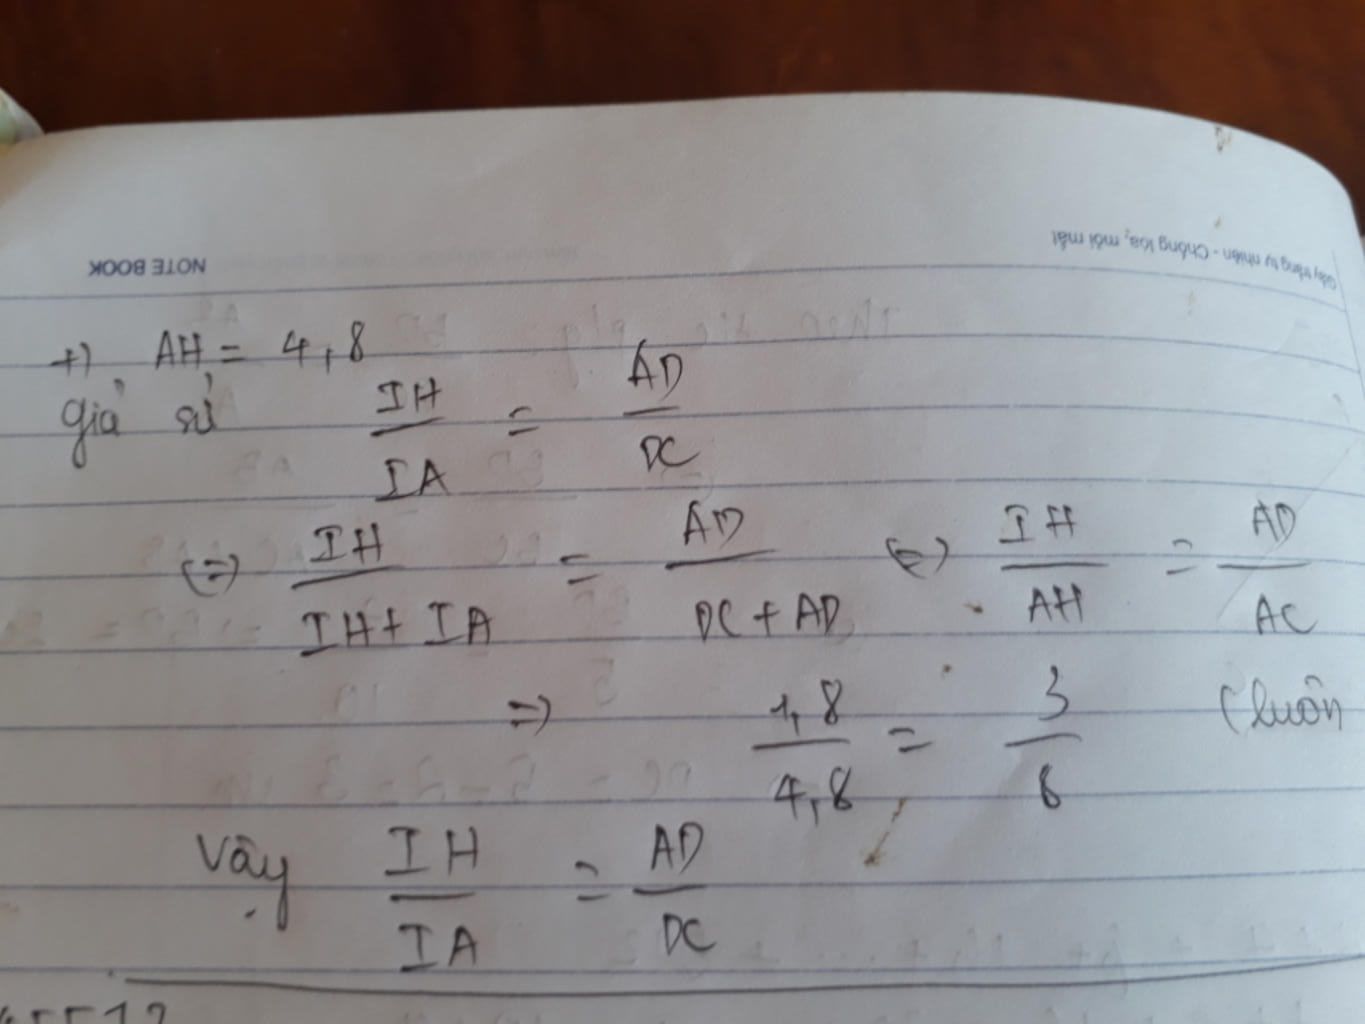 Giấy trắng tự nhiên - Chống lóa, mỏi mắt
NOTE BOOK
+) AH = 4,8
giả sử IH/IA = AD/DC
(=) IH/IH+IA = AD/DC+AD (=) IH/AH = AD/AC
=) 1,8/4,8 = 3/8 (luôn
Vậy IH/IA = AD/DC